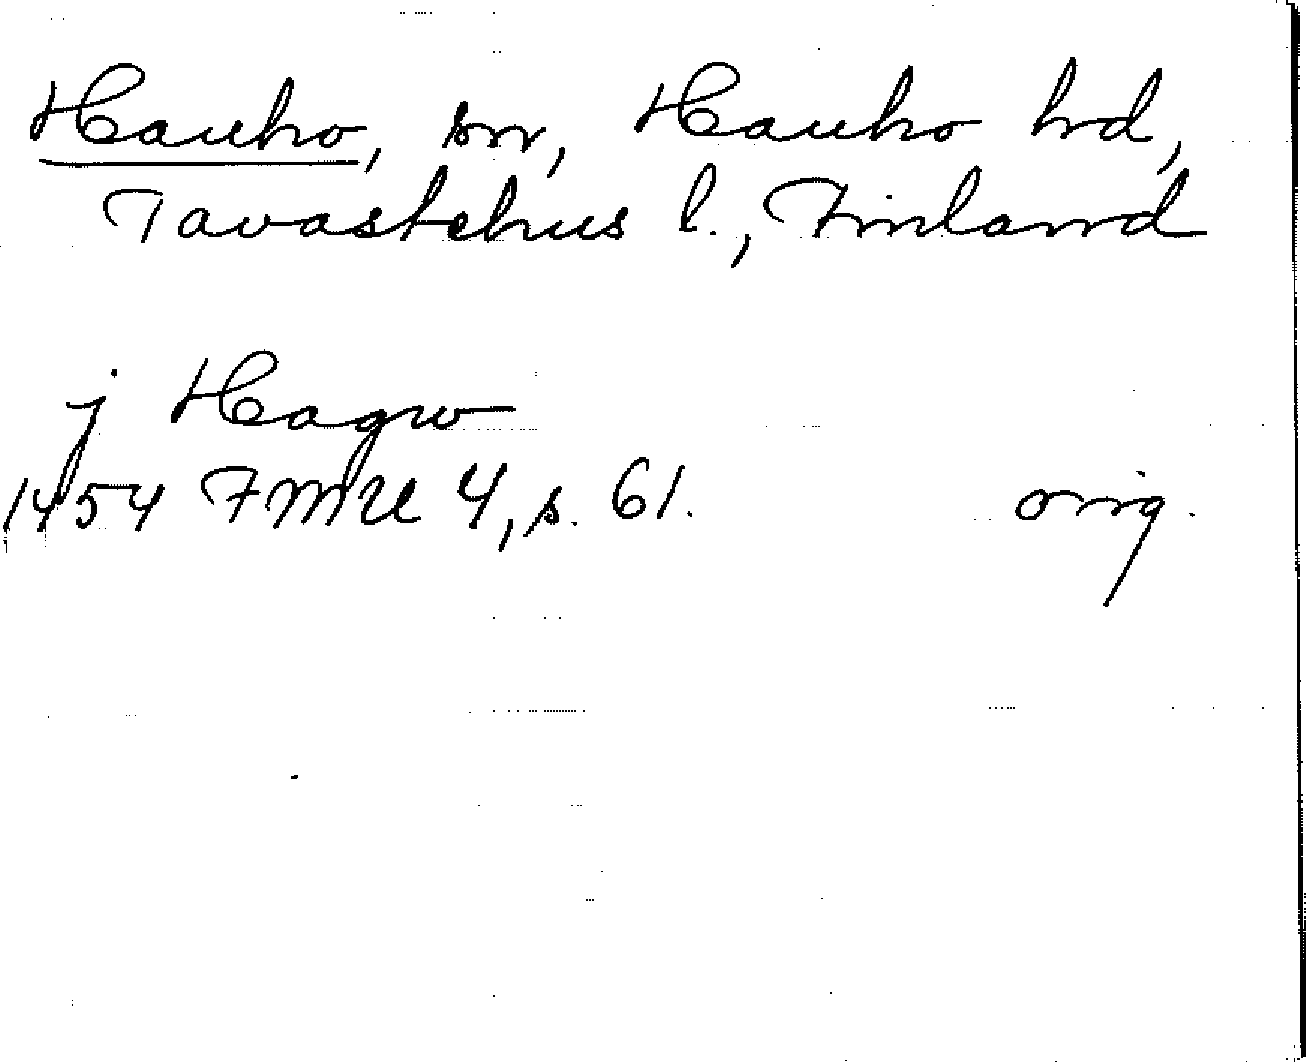 Hauho, sn, Hauho hd,
Tavastehus l., Finland
j Hagw
1454 FMU 4, s. 61. orig.